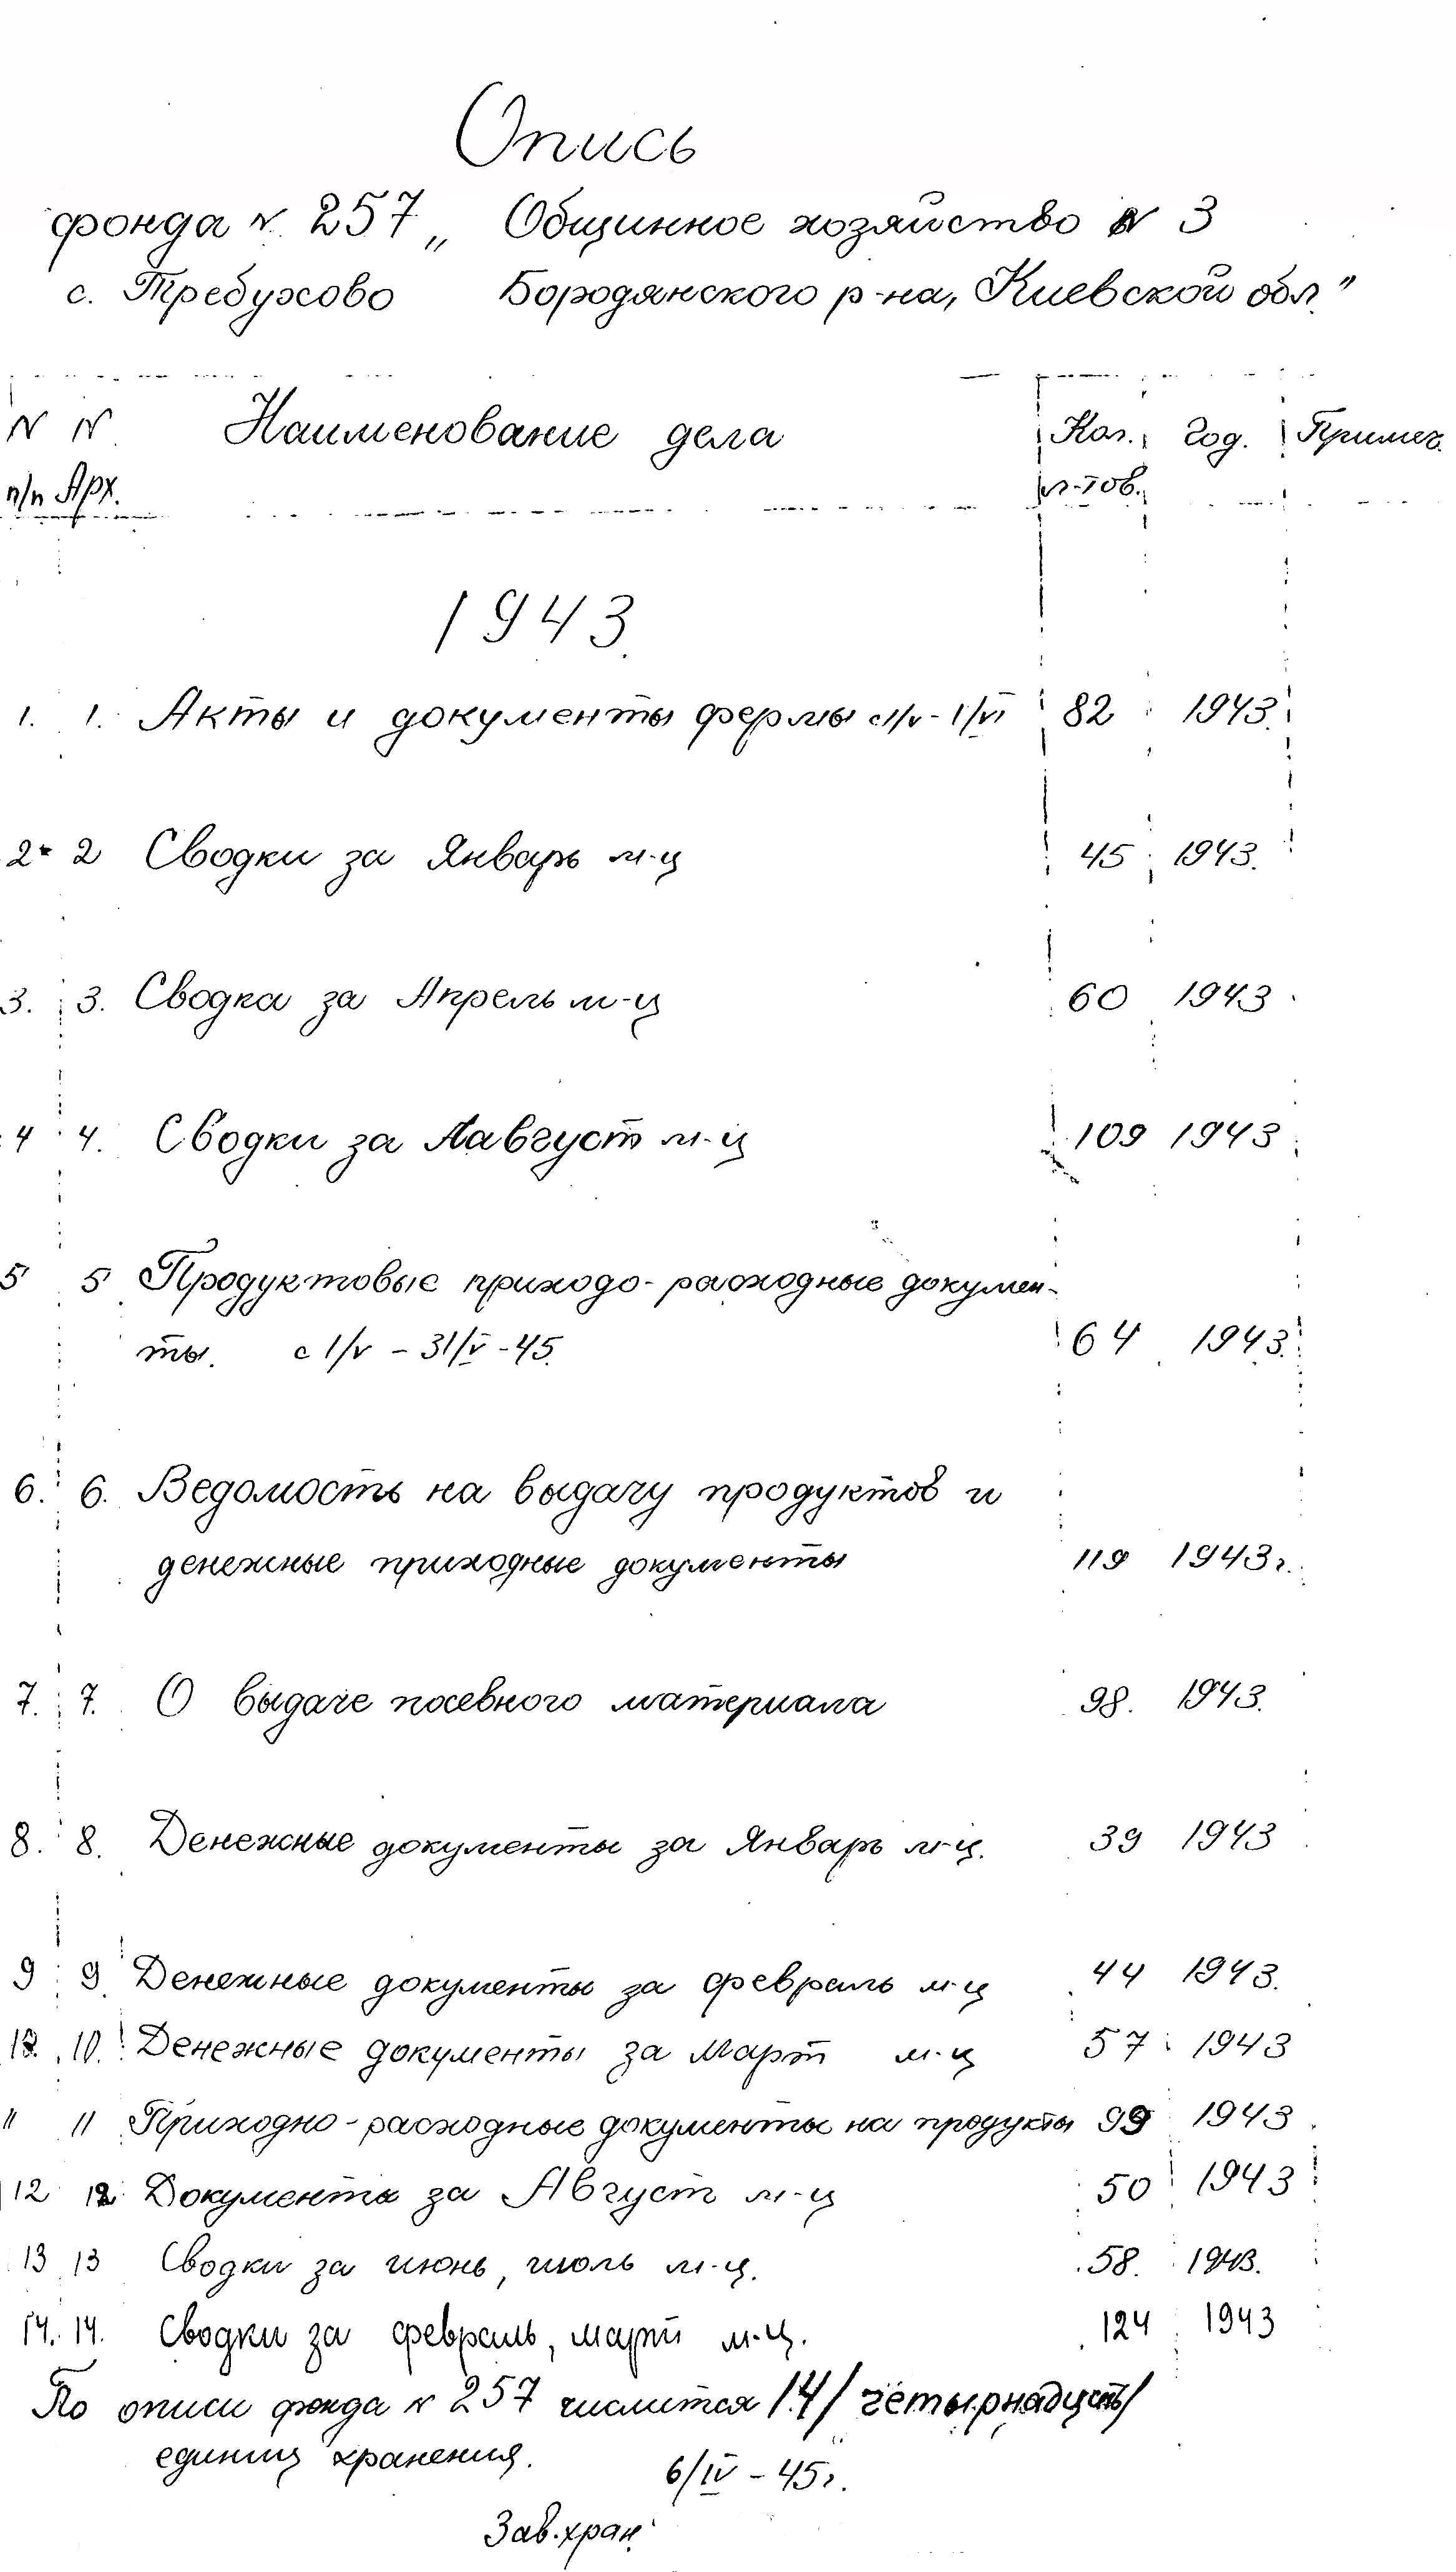 Опись
фонда № 257 „ Общинное хозяйство № 3
с. Требухово Бородянского р-на, Киевской обл.”
№ № Наименование дела Кол. Год. Примеч.
п/п Арх. л-тов.
1943.
1. 1. Акты и документы фермы с 1/V - 1/VI 82 1943.
2. 2 Сводки за Январь м-ц 45 1943.
3. 3. Сводка за Апрель м-ц 60 1943
4 4. Сводки за Аавгуст м-ц 109 1943
5 5 Продуктовые приходо-расходные докумен-
ты. с 1/V - 31/V - 45. 64 1943.
6. 6. Ведомость на выдачу продуктов и
денежные приходные документы 119 1943г.
7. 7. О выдаче посевного материала 98. 1943.
8. 8. Денежные документы за Январь м-ц. 39 1943
9 9 Денежные документы за февраль м-ц 44 1943.
10. 10. Денежные документы за Март м-ц 57 1943
11 11 Приходно-расходные документы на продукты 99 1943
12 12 Документы за Август м-ц 50 1943
13 13 Сводки за июнь, июль м-ц. 58. 1943.
14. 14. Сводки за февраль, март м-ц. 124 1943
По описи фонда № 257 числится 14/четырнадцать/
единиц хранения.
6/IV - 45г.
Зав.хран.